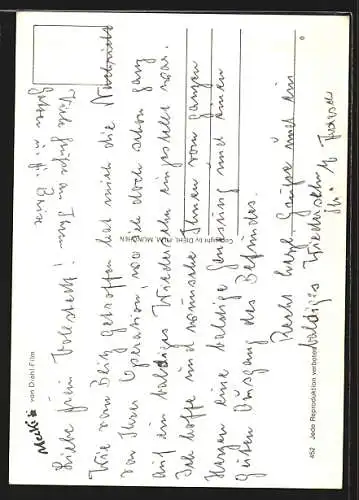 Mecki von Diehl-Film
Liebe Frau
Wie vom Blitz getroffen hat mich die Nachricht
von Ihrer Operation, wo ich doch schon ganz
auf ein baldiges Wiedersehn eingestellt war.
Ich hoffe und wünsche Ihnen von ganzem
Herzen eine baldige Genesung und einen
guten Ausgang des Befundes.
Recht herzl. Grüße und ein
baldiges Wiedersehn
Ihr
Viele Grüße an Ihren
Copyright by DIEHL-FILM, MÜNCHEN
452 Jede Reproduktion verboten